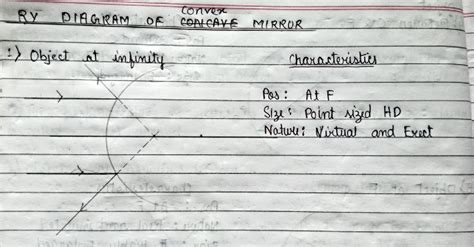 RY DIAGRAM OF CONCAVE Convex MIRROR
1:) Object at infinity
Characteristics
Pos: At F
Size: Point sized HD
Nature: Virtual and Erect